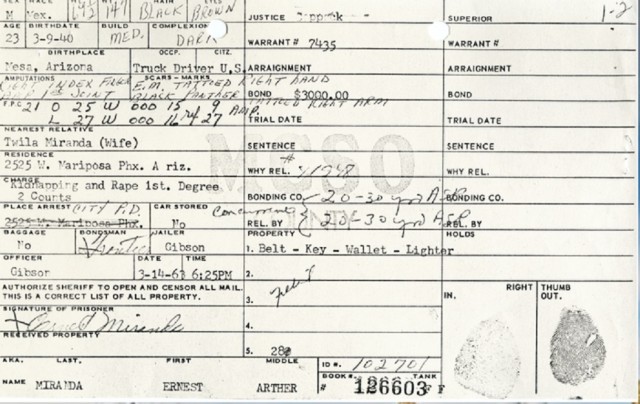 M Mex. 147 BLACK BROWN
JUSTICE
SUPERIOR
1-2
AGE BIRTHDATE BUILD COMPLEXION
23 3-9-40 MED. DARK
WARRANT # 7435
WARRANT #
BIRTHPLACE OCCP. CITZ.
Mesa, Arizona Truck Driver U.S.
ARRAIGNMENT
ARRAIGNMENT
AMPUTATIONS SCARS - MARKS
RIGHT INDEX FINGER E.M. TATTOED RIGHT HAND
1ST JOINT BLACK PANTHER TATTOED RIGHT ARM
BOND $3000.00
BOND
F.P.C. 21 O 25 W 000 15 9 AMP.
L 27 W 000 16 ref 27
TRIAL DATE
TRIAL DATE
NEAREST RELATIVE
Twila Miranda (Wife)
SENTENCE
SENTENCE
MCSO
RESIDENCE
2525 W. Mariposa Phx. A riz.
WHY REL. #
WHY REL.
CHARGE
Kidnapping and Rape 1st. Degree
2 Counts
BONDING CO. 20-30 yrs ASP
BONDING CO.
PLACE ARREST CITY P.D. CAR STORED
2525 W. Mariposa Phx. No
Concurrent
REL. BY 20-30 yrs ASP
REL. BY
BAGGAGE BONDSMAN JAILER
No Gibson
PROPERTY
HOLDS
1. Belt - Key - Wallet - Lighter
OFFICER DATE TIME
Gibson 3-14-63 6:25PM
2.
AUTHORIZE SHERIFF TO OPEN AND CENSOR ALL MAIL.
THIS IS A CORRECT LIST OF ALL PROPERTY.
3.
RIGHT THUMB
IN. OUT.
SIGNATURE OF PRISONER
Ernest Miranda
4.
RECEIVED PROPERTY
5. 28¢
AKA. LAST, FIRST MIDDLE
ID #. 102701
NAME MIRANDA ERNEST ARTHER
BOOK # TANK
126603 F F